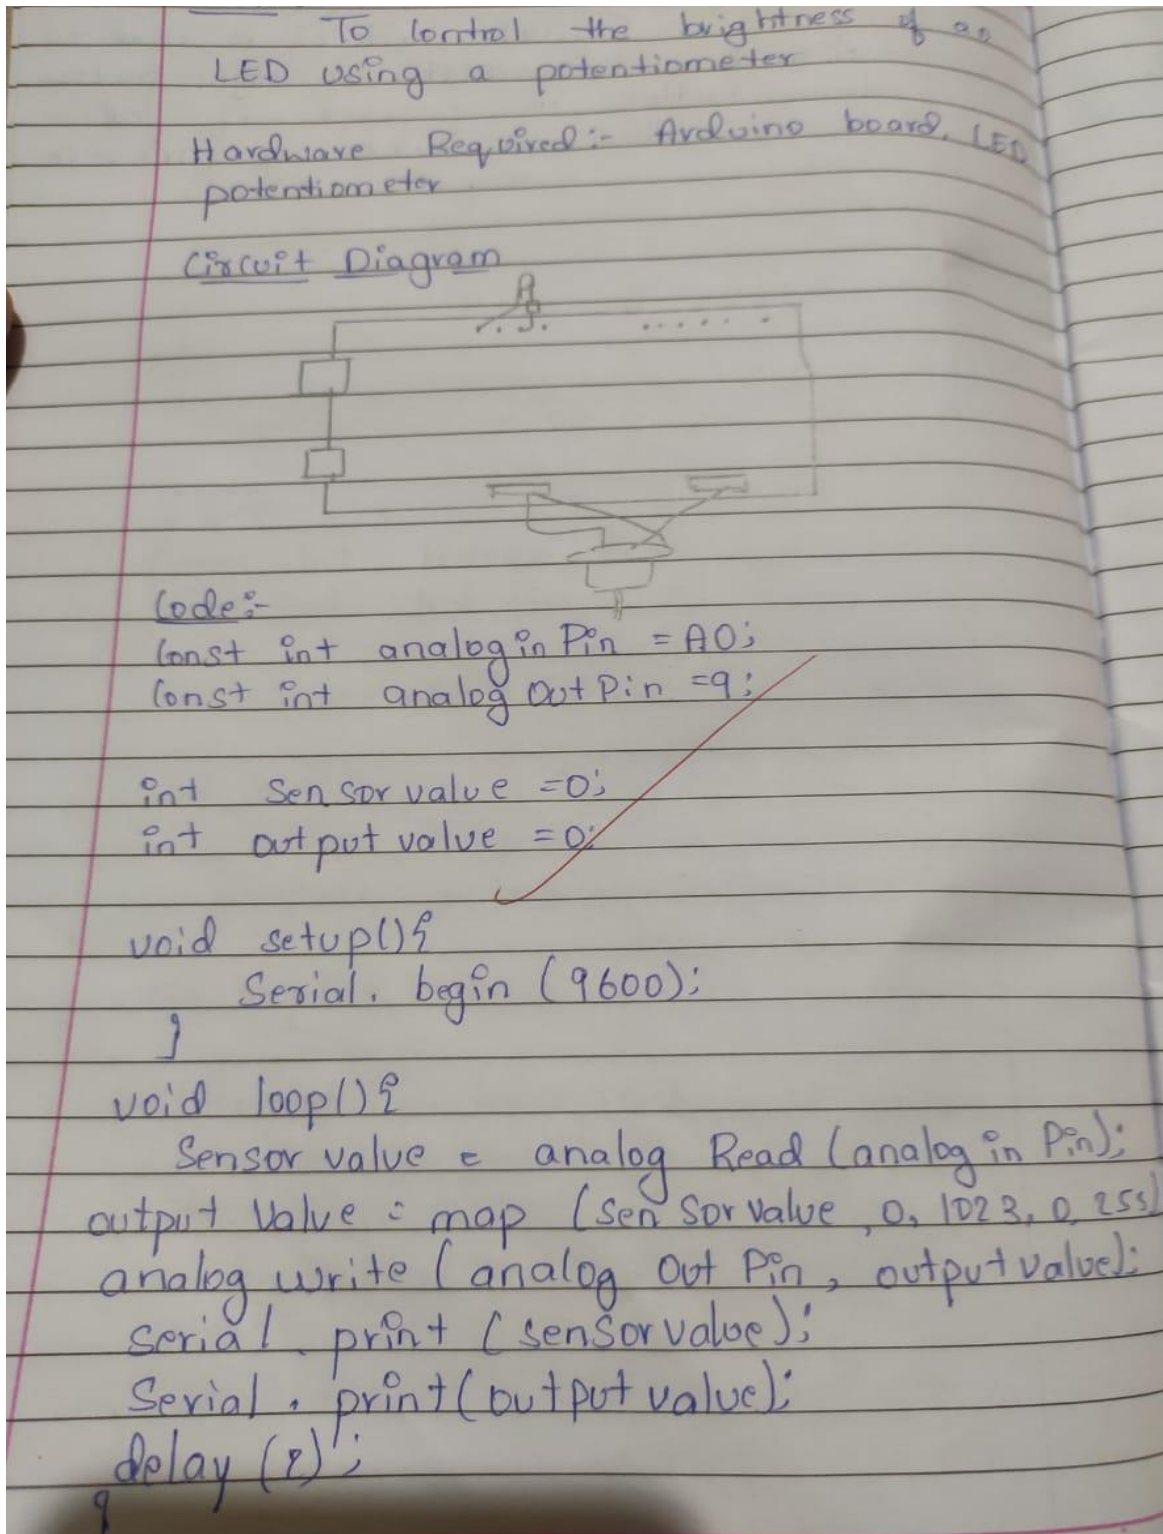 To control the brightness of an
LED using a potentiometer
Hardware Required:- Arduino board, LED
potentiometer
Circuit Diagram
Code:-
Const int analog in Pin = A0;
Const int analog Out Pin =9;
int Sensor value =0;
int output value =0;
void setup(){
Serial. begin (9600);
}
void loop(){
Sensor value = analog Read (analog in Pin);
output Value = map (sensor value, 0, 1023, 0, 255)
analog write (analog Out Pin, output value);
serial. print (sensor value);
Serial. print (output value);
delay (2);
}